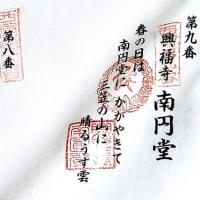 第九番
興福寺
南円堂
春の日は
南円堂に
かがやきて
三笠の山に
晴るうす雲
第八番